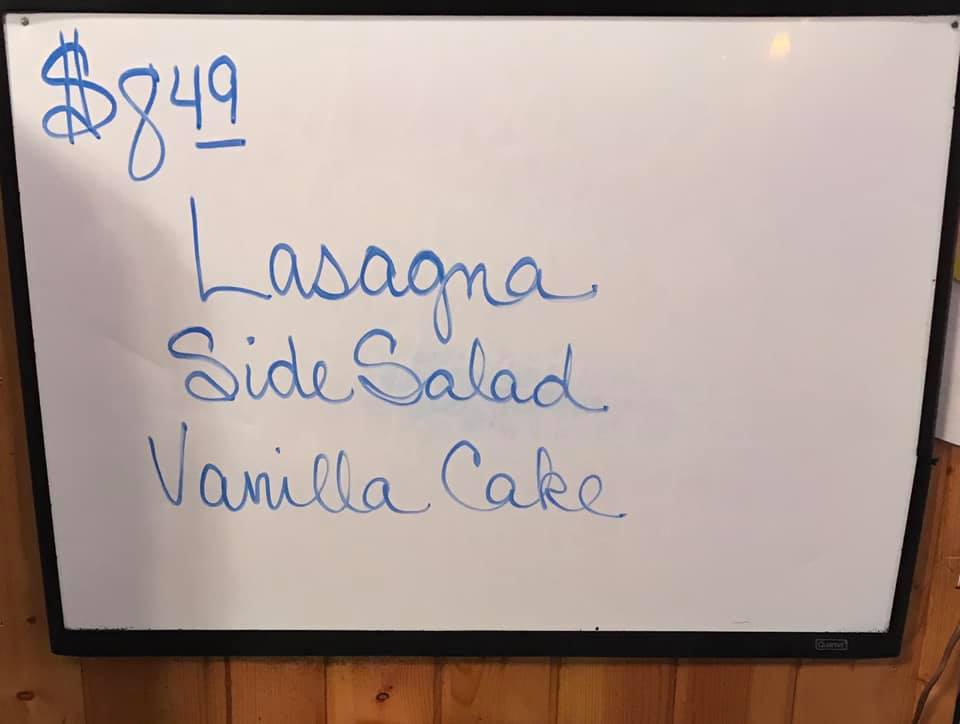 $8 49
Lasagna
Side Salad
Vanilla Cake
Quartet